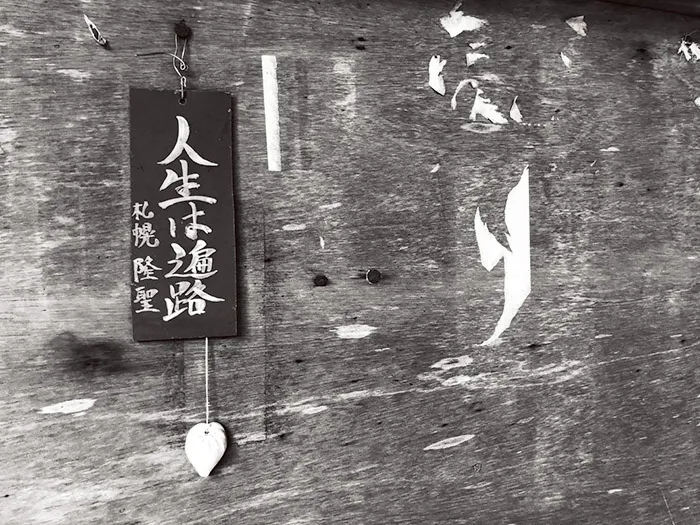 人生は遍路
札幌 隆聖